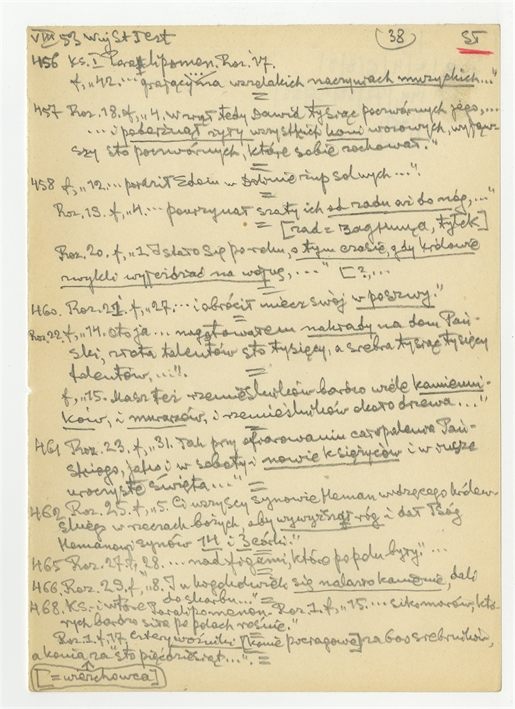 VIII 53 Wuj St Test (38) ST
456 Ks. I Paralipomen. Roz. 17.
f, „42. ... grający na wszelakich naczyniach muzyckich..."
457 Roz. 18. f, „4. Wziął tedy Dawid tysiąc poczwórnych jego,...
... i poderznął żyły wszystkich koni wozowych, wyjąw-
szy sto poczwórnych, które sobie zachował."
458 f, „12. ... poraził Edom w Dolinie żup solnych..."
Roz. 19. f, „4. ... pourzynał szaty ich od zadu aż do nóg,..."
[zad = , tyłek]
Roz. 20. f, „1. I stało się po roku, o tym czasie, gdy królowie
zwykli wyjeżdżać na wojnę,..." [?...
460. Roz. 21. f, „27. ... i obrócił miecz swój w poszwy."
Roz 22. f, „14. Oto ja ... nagotowałem nakłady na dom Pań-
ski, złota talentów sto tysięcy, a srebra tysiąc tysięcy
talentów,...".
f, „15. Masz też rzemieślników bardzo wiele kamienni-
ków, i murarzów, i rzemieślników około drzewa..."
461 Roz. 23. f, „31. Tak przy ofiarowaniu całopalenia Pań-
skiego, jako i w soboty i nowie księżyców i w insze
uroczyste święta..."
462 Roz. 25. f, „5. Ci wszyscy synowie Heman widzącego królew-
skiego w rzeczach bożych, aby wywyższał róg i dał Bóg
Hemanowi synów 14 i 3 córki."
465 Roz. 27. f, „28. ... nad figami, które po polu były."...
466. Roz. 29. f, „8. I u kogokolwiek się nalazło kamienie, dali
do skarbu..."
468. Ks. wtóre Paralipomenon. Roz. 1. f, „15. ... sikomorów, któ-
rych bardzo siła po polach roście."
Roz. 1. f, 17, cztery woźniki [konie pociągowe] za 600 srebrników,
a konia za sto pięćdziesiąt...".
[= wierzchowca]